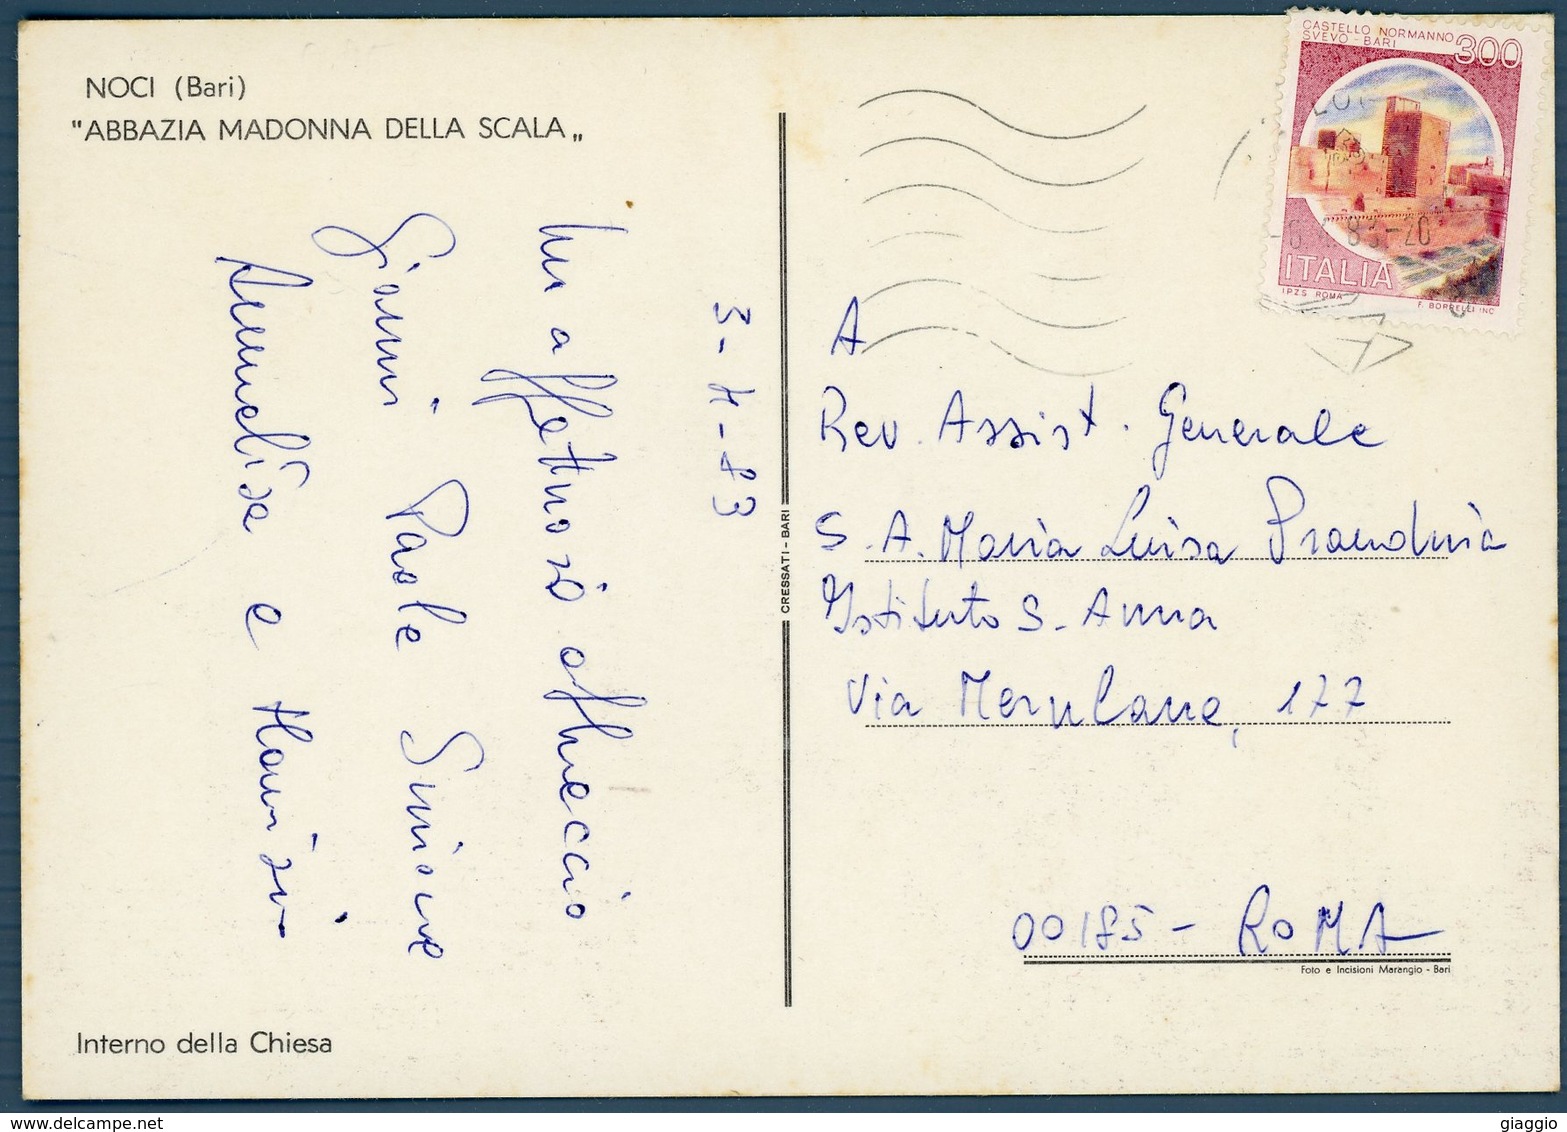 NOCI (Bari)
"ABBAZIA MADONNA DELLA SCALA„
3-4-83
Un affettuoso abbraccio
Gianni Paola Simone
Annelisa e Maurizio
Interno della Chiesa
CRESSATI - BARI
CASTELLO NORMANNO
SVEVO - BARI
300
83-20
ITALIA
I.P.Z.S. ROMA
F. BORRELLI INC.
A
Rev. Assist. Generale
S. A. Maria Luisa
Istituto S. Anna
Via Merulana, 177
00185 - ROMA
Foto e Incisioni Marangio - Bari
giaggio